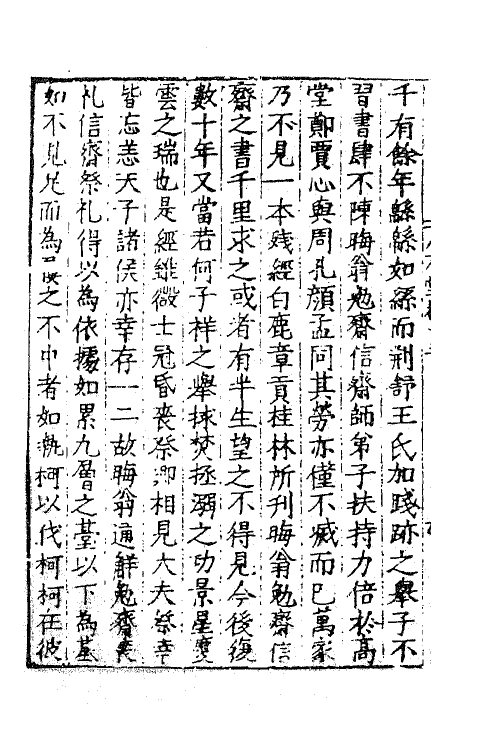 千有餘年緜緜如絲而荆舒王氏加踐跡之舉子不
習書肆不陳晦翁勉齋信齋師弟子扶持力倍於高
堂鄭賈心與周孔顔孟同其勞亦僅不臧而已萬家
乃不見一本残經白鹿章貢桂林所刋晦翁勉齋信
齋之書千里求之或者有半生望之不得見今後復
數十年又當若何子祥之舉捄焚拯溺之功景星慶
雲之瑞也是經雖微士冠昏喪祭鄉相見大夫祭幸
皆忘恙天子諸侯亦幸存一二故晦翁通觧勉齋喪
礼信齋祭礼得以為依據如累九層之䑓以下為基
如不見足而為屨之不中者如執柯以伐柯柯在彼